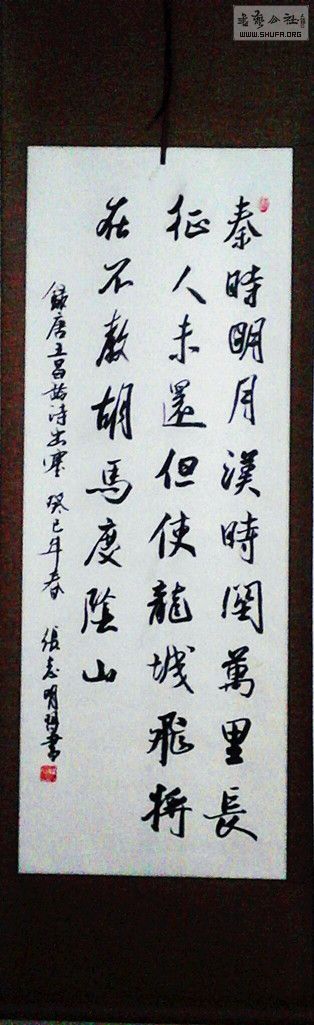 書藝公社
WWW.SHUFA.ORG
秦時明月漢時關萬里長
征人未還但使龍城飛將
在不教胡馬度陰山
錄唐王昌齡詩出塞 癸巳年春 張志明書